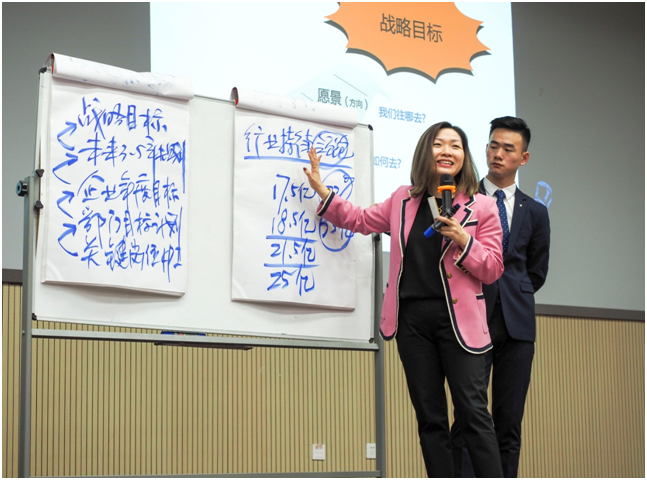 战略目标
愿景（方向）
我们往哪去？
如何去？
战略目标
未来3-5年规划
企业年度目标
部门目标计划
关键岗位
行业持续
17.5亿
18.5亿
21.5亿
25亿